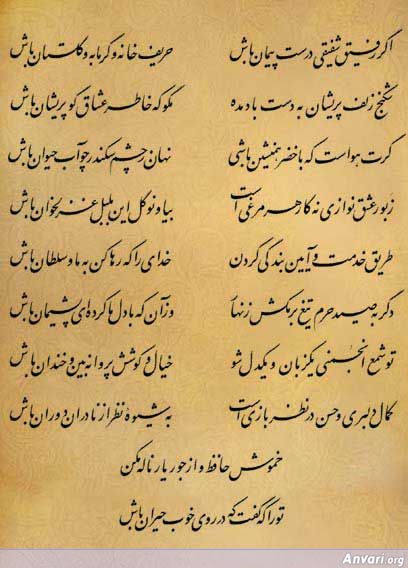 اگر رفیق شفیقی درست پیمان باش حریف خانه و گرمابه و گلستان باش
شکنج زلف پریشان به دست باد مده مگو که خاطر عشاق گو پریشان باش
گرت هواست که با خضر همنشین باشی نهان ز چشم سکندر چو آب حیوان باش
زبور عشق نوازی نه کار هر مرغی است بیا و نوگل این بلبل غزلخوان باش
طریق خدمت و آیین بندگی کردن خدای را که رها کن به ما و سلطان باش
دگر به صید حرم تیغ برمکش زنهار و زآن که با دل ما کرده‌ای پشیمان باش
تو شمع انجمنی یکزبان و یکدل شو خیال و کوشش پروانه بین و خندان باش
کمال دلبری و حسن در نظربازی است به شیوهٔ نظر از نادران دوران باش
خموش حافظ و از جور یار ناله مکن
تو را که گفت که در روی خوب حیران باش
Anvari.org